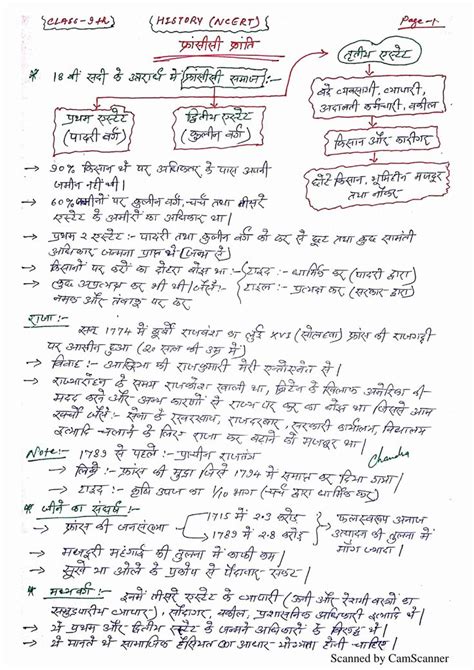 CLASS-9th
HISTORY (NCERT)
Page-1
फ्रांसीसी क्रांति
तृतीय एस्टेट
* 18 वीं सदी के आरम्भ में फ्रांसीसी समाज :-
प्रथम एस्टेट
(पादरी वर्ग)
द्वितीय एस्टेट
(कुलीन वर्ग)
बड़े व्यवसायी, व्यापारी,
अदालती कर्मचारी, वकील
किसान और कारीगर
छोटे किसान, भूमिहीन मजदूर
तथा नौकर
→ 90% किसान थे पर अधिकतर के पास अपनी
जमीन नहीं थी।
→ 60% जमीनों पर कुलीन वर्ग, चर्च तथा तीसरे
एस्टेट के अमीरों का अधिकार था।
→ प्रथम 2 एस्टेट :- पादरी तथा कुलीन वर्ग को कर से छूट तथा कुछ सामंती
अधिकार जन्मना प्राप्त थे (जन्म से)
→ किसानों पर करों का दोहरा बोझ था :- टाइद :- धार्मिक कर (पादरी द्वारा)
→ कुछ अप्रत्यक्ष कर भी थे जैसे :- टाइल :- प्रत्यक्ष कर (सरकार द्वारा)
नमक और तंबाकू पर कर
राजा :-
सन् 1774 में बूर्बों राजवंश का लुई XVI (सोलहवां) फ्रांस की राजगद्दी
पर आसीन हुआ (20 साल की उम्र में)
→ विवाह :- आस्ट्रिया की राजकुमारी मेरी एन्तोएनेत से।
→ राज्यारोहण के समय राजकोष खाली था, ब्रिटेन के खिलाफ अमेरिका की
मदद करने और अन्य कारणों से राज्य पर कर का बोझ था (जिससे आम
खर्चों जैसे :- सेना के रखरखाव, राजदरबार, सरकारी कार्यालय, विद्यालय
इत्यादि चलाने के लिए राजा कर बढ़ाने को मजबूर था।
Note:- 1789 से पहले :- प्राचीन राजतंत्र
Chandra
→ लिव्रे :- फ्रांस की मुद्रा जिसे 1794 में समाप्त कर दिया गया।
→ टाइद :- कृषि उपज का 1/10 भाग (चर्च द्वारा धार्मिक कर)
* जीने का संघर्ष :-
→ फ्रांस की जनसंख्या
1715 में 2.3 करोड़
1789 में 2.8 करोड़
फलस्वरूप अनाज
उत्पादन की तुलना में
मांग ज्यादा।
→ मजदूरी महंगाई की तुलना में काफी कम।
→ सूखे या ओले के प्रकोप से पैदावार
* मध्यवर्ग :- इनमें तीसरे एस्टेट के व्यापारी (ऊनी और रेशमी वस्त्रों का
समुद्रपारीय व्यापार), सौदागर, वकील, प्रशासनिक अधिकारी इत्यादि थे।
→ ये प्रथम और द्वितीय एस्टेट के जन्मना अधिकारों के विरुद्ध थे।
→ ये मानते थे सामाजिक हैसियत का आधार योग्यता होनी चाहिए।
Scanned by CamScanner